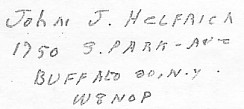 JOHN J. HELFRICH
1750 S. PARK-AVE
BUFFALO 20, N.Y.
W2NOP